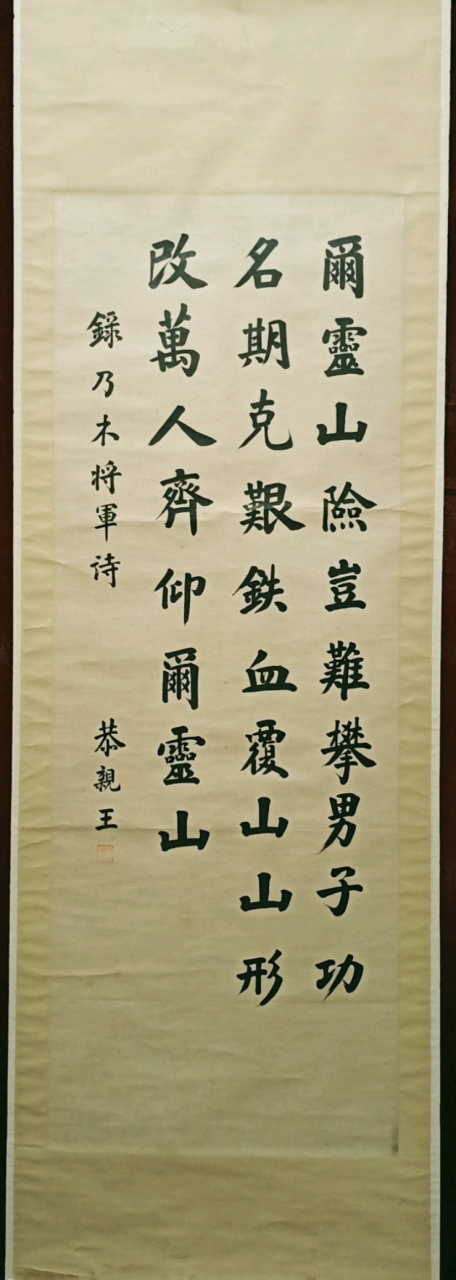 爾靈山險豈難攀男子功
名期克艱鉄血覆山山形
改萬人齊仰爾靈山
錄乃木将軍诗
恭親王